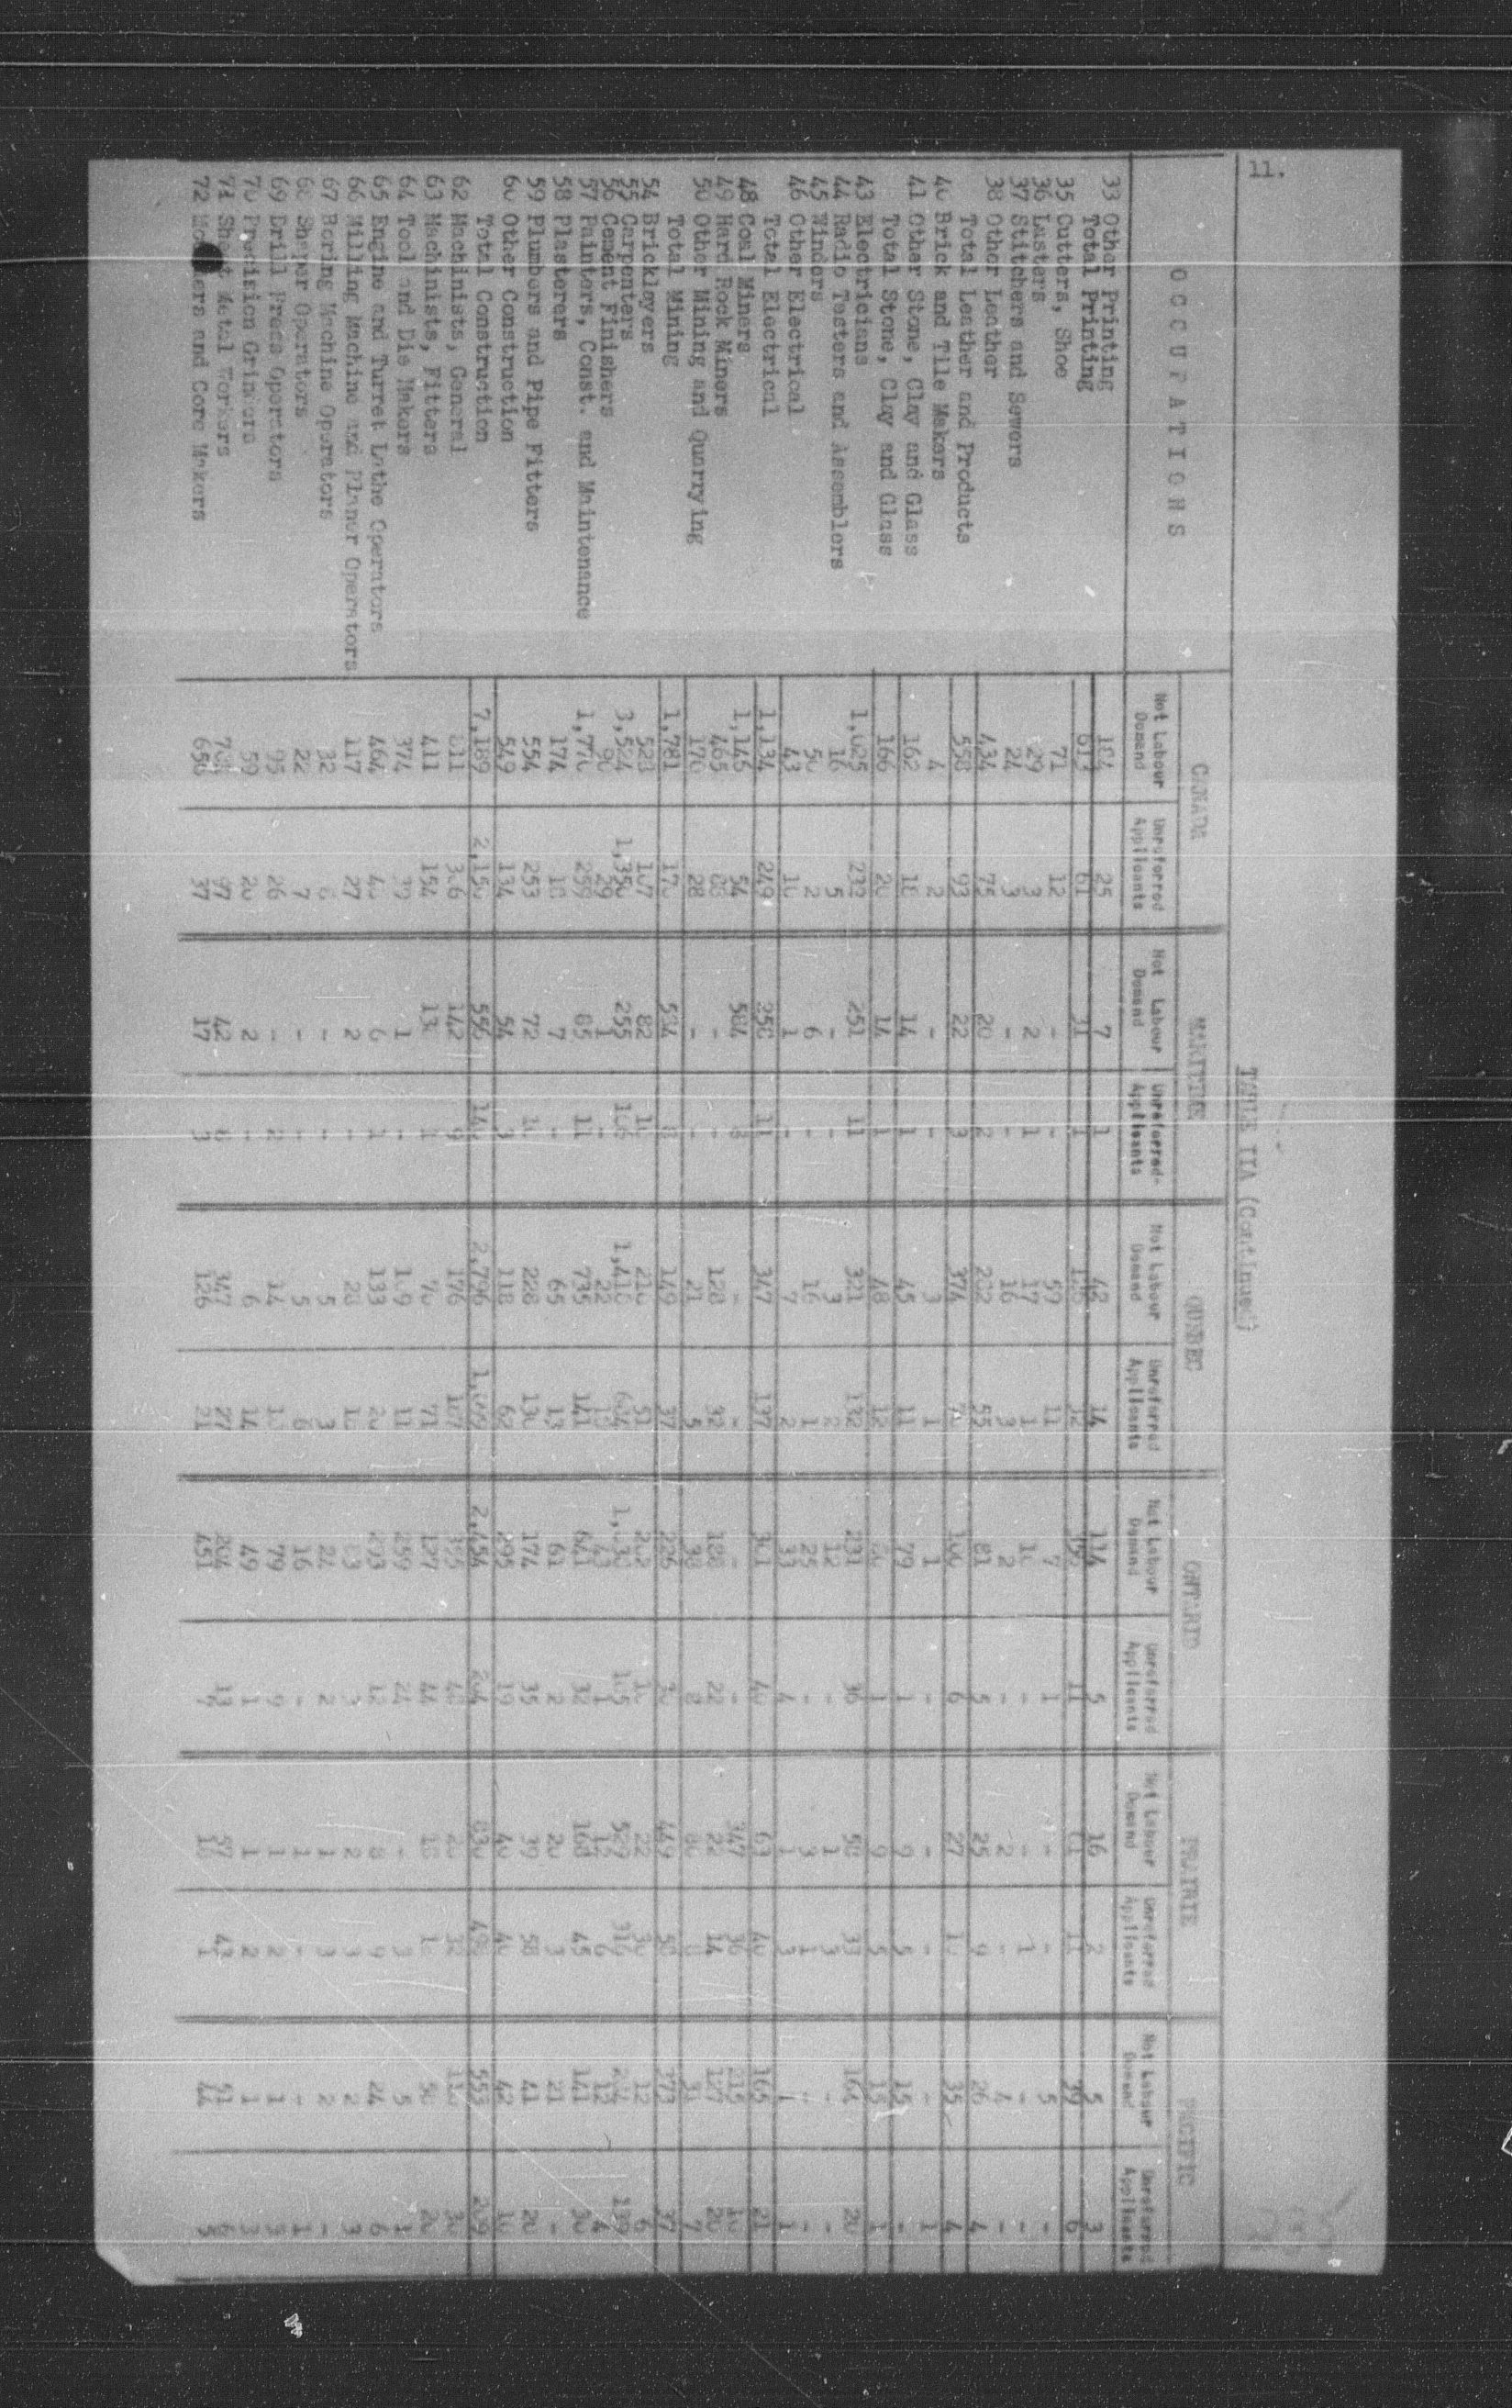 11.
TABLE IIA (Continued)
CANADA MARITIME QUEBEC ONTARIO PRAIRIE PACIFIC
OCCUPATIONS Net Labour Demand Unreferred Applicants Net Labour Demand Unreferred Applicants Net Labour Demand Unreferred Applicants Net Labour Demand Unreferred Applicants Net Labour Demand Unreferred Applicants Net Labour Demand Unreferred Applicants
33 Other Printing 184 25 7 1 42 14 114 5 16 2 5 3
Total Printing 61 21 1 11 11 29 6
35 Cutters, Shoe 71 12 - - 59 11 7 1 - - 5 -
36 Lasters 29 3 2 1 17 1 10 - - 1 - -
37 Stitchers and Sewers 24 3 - - 16 3 2 - 2 - 4 -
38 Other Leather 434 75 20 2 222 55 81 5 25 9 26 4
Total Leather and Products 558 93 22 3 374 6 27 10 35 4
40 Brick and Tile Makers 4 2 - - 3 1 1 - - - - 1
41 Other Stone, Clay and Glass 162 18 14 1 45 11 79 1 9 5 15 -
Total Stone, Clay and Glass 166 20 14 1 48 12 1 9 5 15 1
43 Electricians 1,025 232 251 11 321 132 231 36 58 33 164 20
44 Radio Testers and Assemblers 16 5 - - 3 2 12 - 1 3 - -
45 Winders 50 2 6 - 16 1 25 - 3 1 - -
46 Other Electrical 43 10 1 - 7 2 33 4 1 3 1 1
Total Electrical 1,134 249 258 11 347 137 301 40 63 40 165 21
48 Coal Miners 1,145 54 584 8 - - - - 347 36 10
49 Hard Rock Miners 465 88 - - 128 32 188 22 22 14 127 20
50 Other Mining and Quarrying 170 28 - - 21 5 38 8 80 8 31 7
Total Mining 1,781 170 584 8 149 37 226 30 449 58 273 37
54 Bricklayers 523 107 82 10 210 51 202 10 22 30 12 6
55 Carpenters 3,524 1,350 255 106 1,416 105 529 316
56 Cement Finishers 90 29 1 - 22 43 1 12 6 12 4
57 Painters, Const. and Maintenance 1,770 259 85 11 735 141 641 32 168 45 141 30
58 Plasterers 174 18 7 - 65 13 61 2 20 3 21 -
59 Plumbers and Pipe Fitters 554 253 72 10 228 130 174 35 39 58 41 20
60 Other Construction 549 134 54 3 118 62 295 19 40 40 42 10
Total Construction 7,189 2,150 556 2,796 2,454 204 830 498 553 209
62 Machinists, General 811 306 142 9 176 107 48 20 32 110 30
63 Machinists, Fitters 411 154 130 1 70 71 127 44 18 10 50 20
64 Tool and Die Makers 374 39 1 - 109 11 259 24 - 3 5 1
65 Engine and Turret Lathe Operators 464 40 6 1 133 20 293 12 8 9 24 6
66 Milling Machine and Planer Operators 117 27 2 - 28 10 83 3 2 3 2 3
67 Boring Machine Operators 32 - - 5 3 24 2 1 3 2 -
68 Shaper Operators 22 7 - - 5 6 16 - 1 - - 1
69 Drill Press Operators 95 26 - 2 14 10 79 9 1 2 1 3
70 Precision Grinders 59 20 2 - 6 14 49 1 1 2 1 3
71 Sheet Metal Workers 97 42 6 347 27 204 13 57 43 51 6
72 and Core Makers 656 37 17 3 126 21 451 7 18 1 44 5